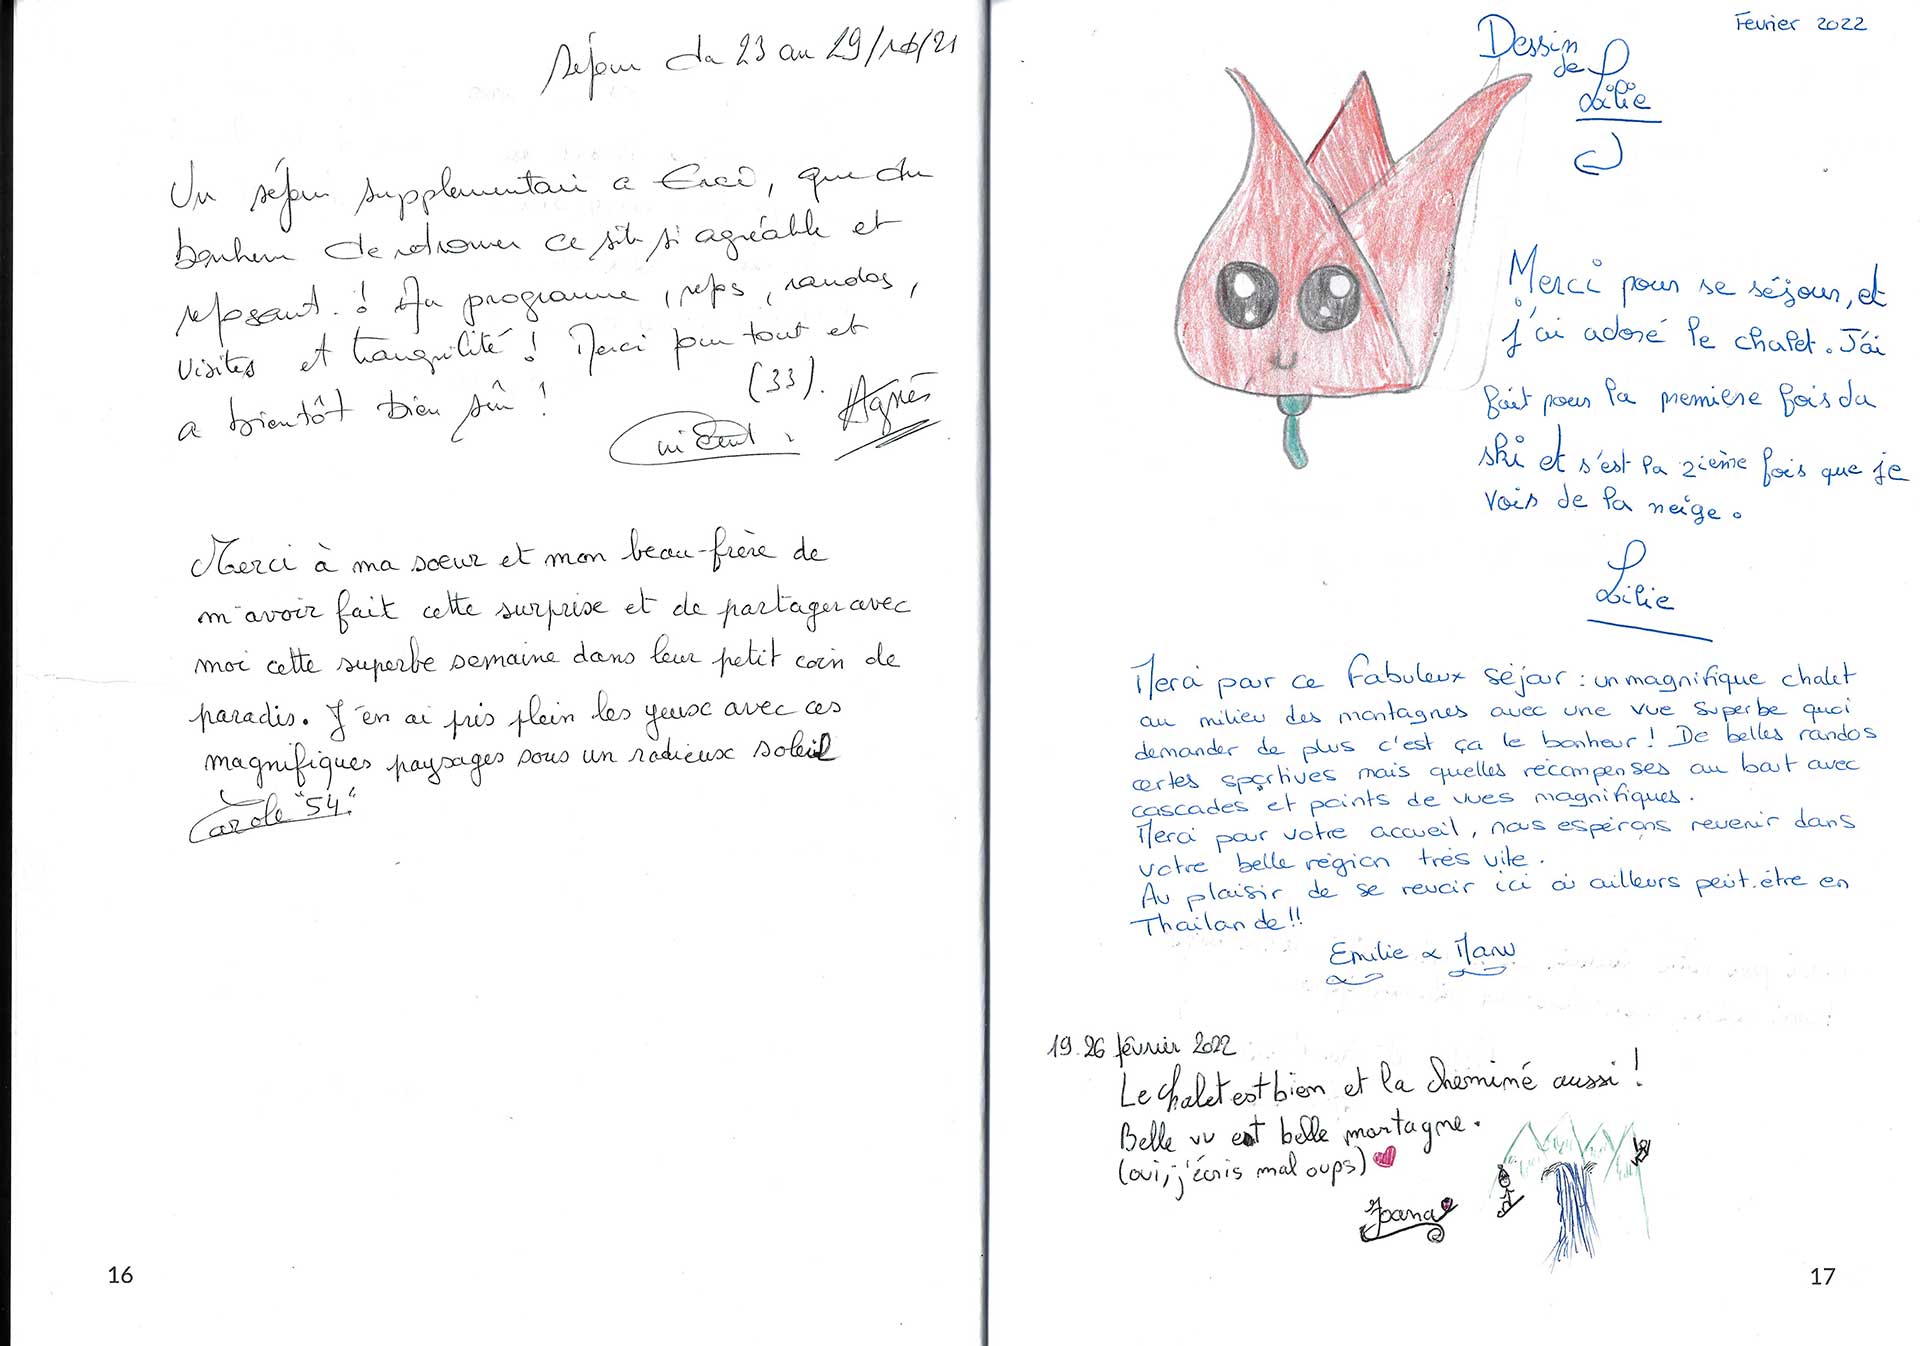 séjour du 23 au 29/10/21
Un séjour supplementair a, que du
bonheur de retrouver ce site si agréable et
reposant.! Au programme, repos, randos,
visites et tranquilité! Merci pour tout et
a bientôt bien sûr! (33).
Vincent. Agnès
Merci à ma soeur et mon beau-frère de
m'avoir fait cette surprise et de partager avec
moi cette superbe semaine dans leur petit coin de
paradis. J'en ai pris plein les yeux avec ces
magnifiques paysages sous un radieux soleil
Carole "54."
16
Fevrier 2022
Dessin
de
Lilie
Merci pour se séjour, et
j'ai adoré le chalet. J'ai
fait pour la première fois du
ski et s'est la 2ieme fois que je
vois de la neige.
Lilie
Merci pour ce fabuleux séjour : un magnifique chalet
au milieu des montagnes avec une vue superbe quoi
demander de plus c'est ça le bonheur! De belles randos
certes sportives mais quelles récompenses au bout avec
cascades et points de vues magnifiques.
Merci pour votre accueil, nous espérons revenir dans
votre belle région très vite.
Au plaisir de se revoir ici ou ailleurs peut-être en
Thailande!!
Emilie & Manu
19.26 février 2022
Le chalet est bien et la cheminé aussi!
Belle vu et belle montagne.
(oui, j'écris mal oups)
Joana
17